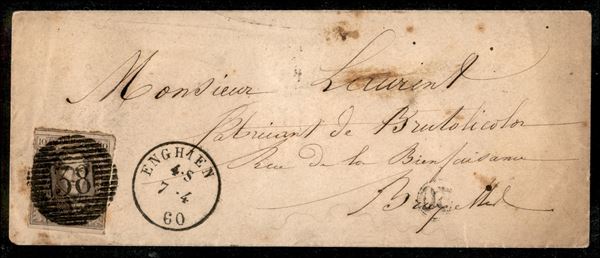 Monsieur Laurent
Fabricant de
Rue de la Bienfaisance
ENGHIEN
4·S
7·4
60
38